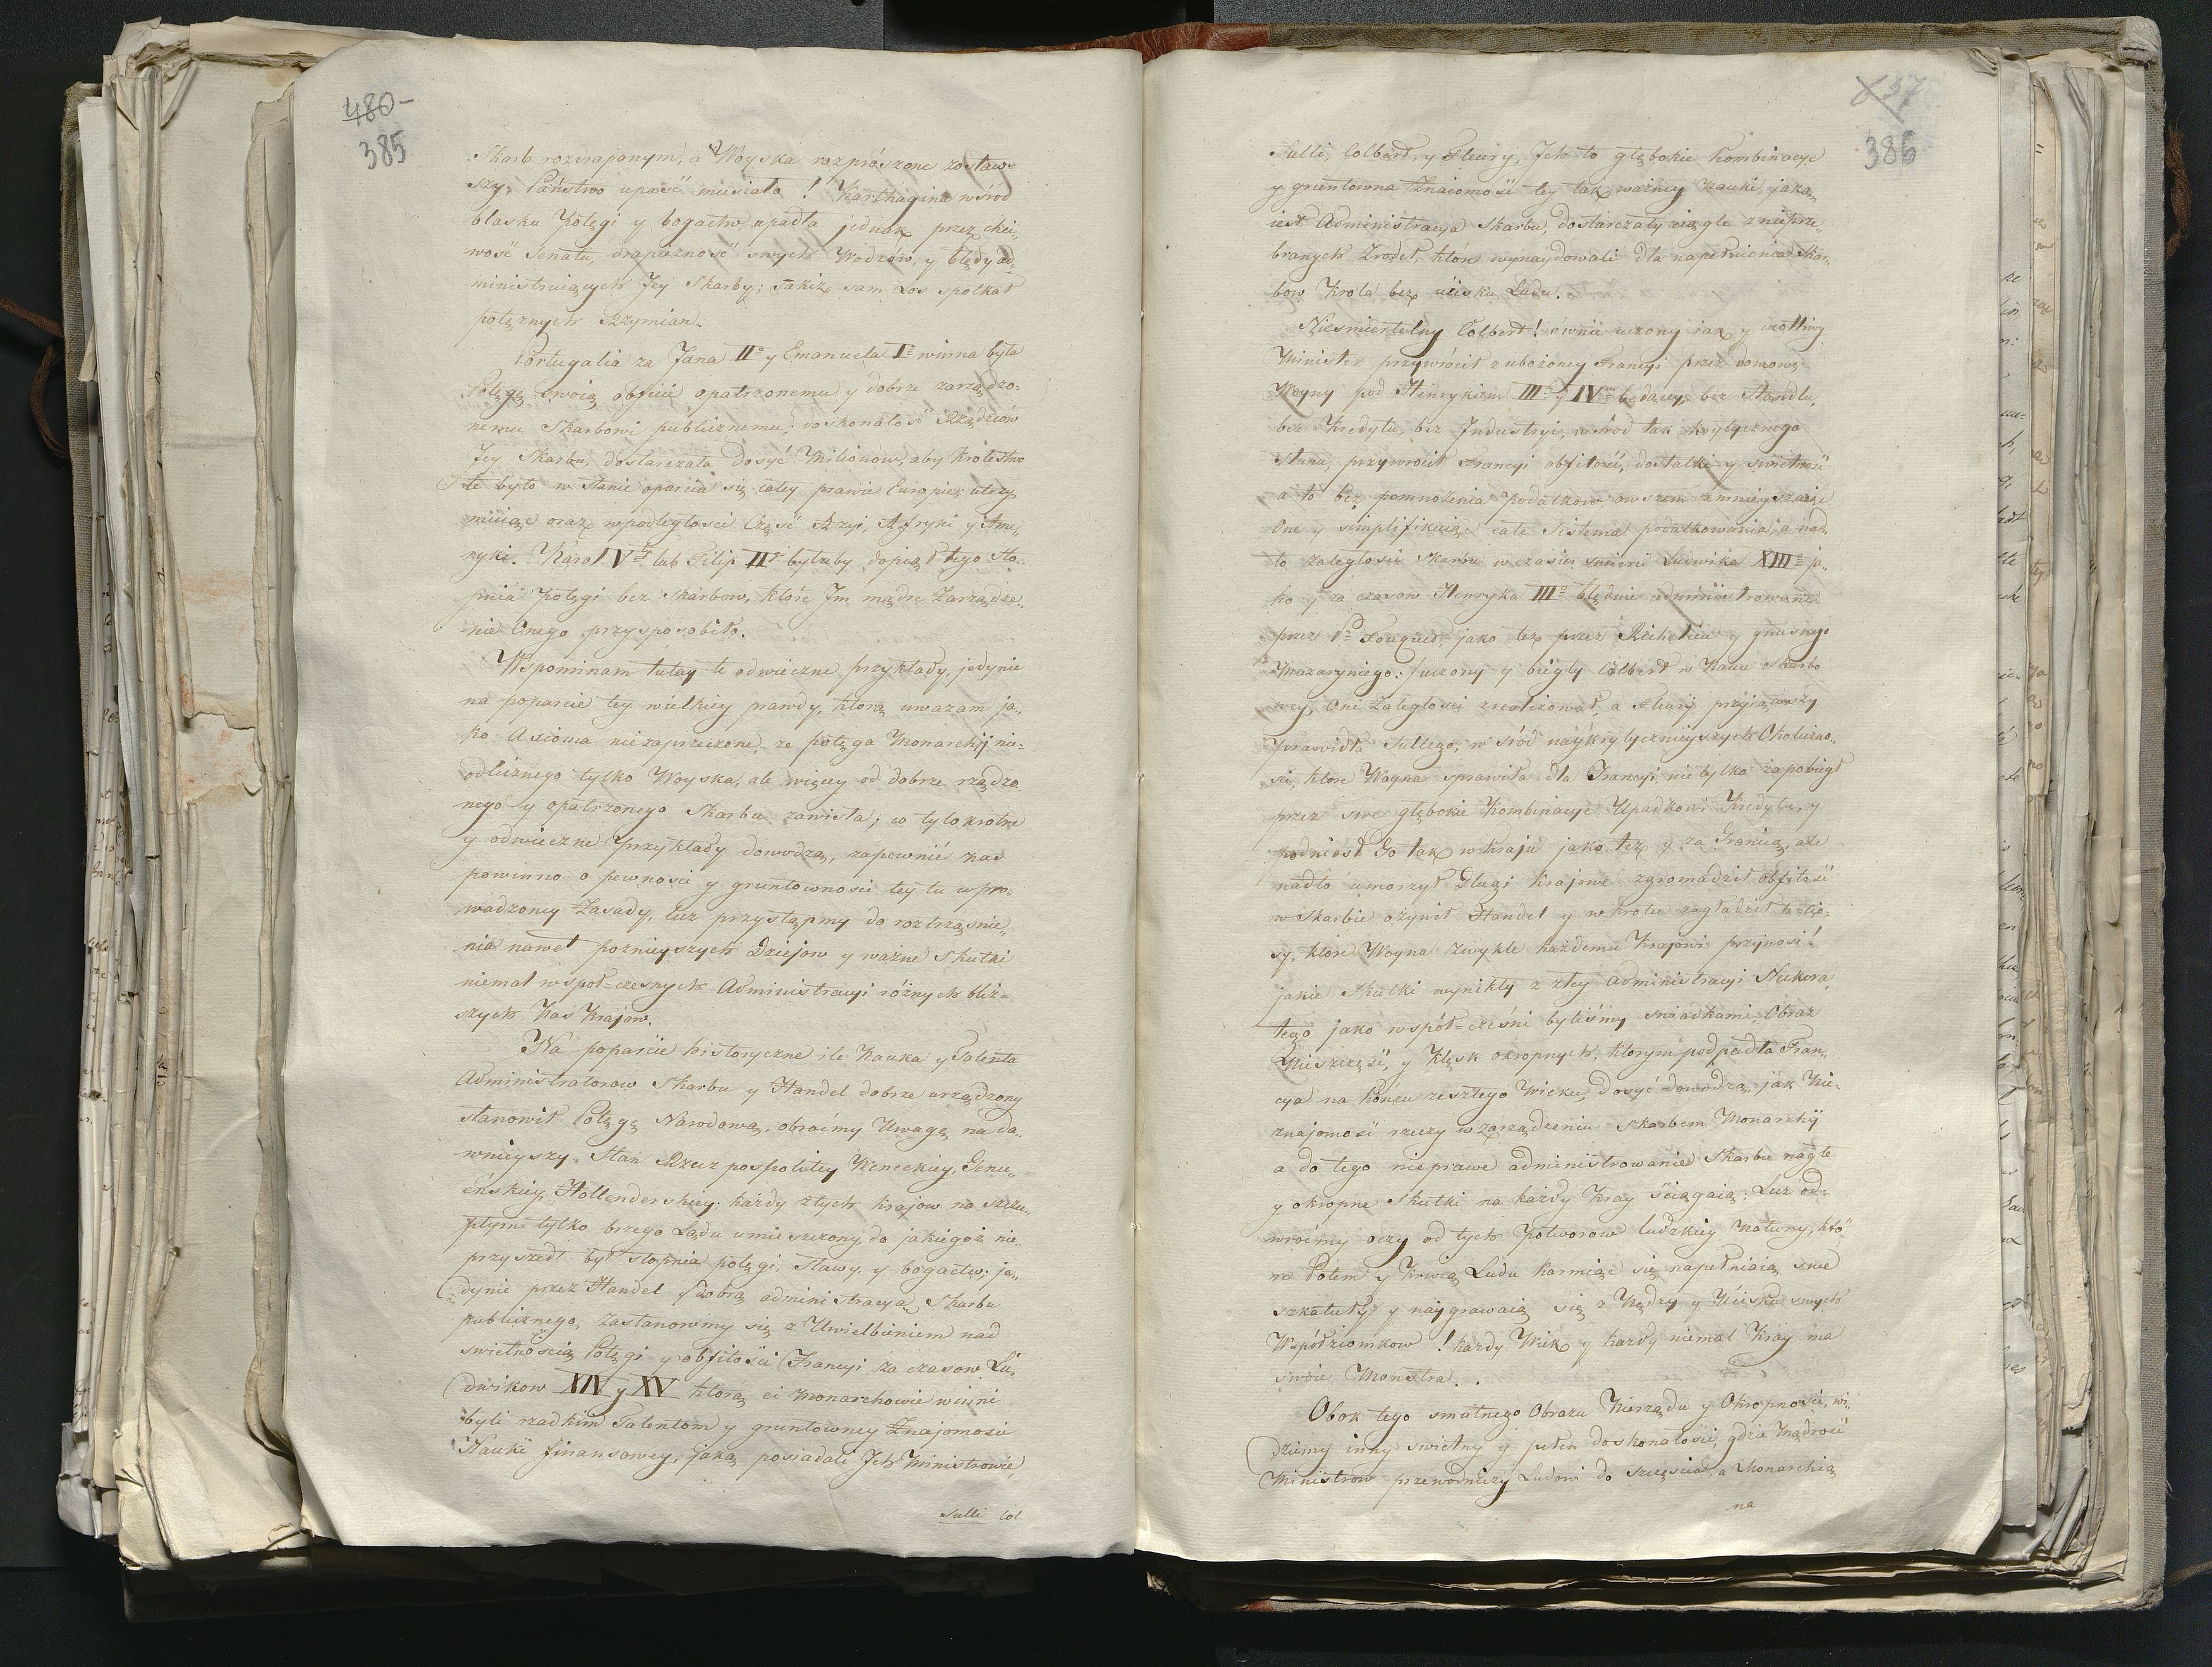 480-
385
Skarb rozdrapanym, a Woyska rozprószone zostaw=
szy, Państwo upaść musiało! Karthagina wśród
blasku Potęgi y bogactw upadła jednak przez chci„
wość Senatu, drapieżność swych Wodzów, y błędy ad„
ministruiących Jey Skarby; takiż sam Los spotkał
potężnych Rzymian.
Portugalia za Jana IIo y Emanuela Io winna była
Potęgę swoią obficie opatrzonemu y dobrze zarządzo=
nemu Skarbowi publicznemu; doskonałość Rządzców
Jey Skarbu, dostarczała dosyć Milionow, aby Krolestwo
te było w stanie oparcia się całey prawie Europie; utrzy„
muiąc oraz w podległosci Część Azyi, Afryki y Ame„
ryki. Karol V lub Filip II byłżeby dopiął tego Sto„
pnia Potęgi bez Skarbow, które Jm mądre Zarządza„
nie Onego przysposobiło.
Wspominam tutay te odwieczne przykłady, jedynie
na poparcie tey wielkiey prawdy, ktorą uwazam ja„
ko Axioma niezaprzeczone, ze potęga Monarchij nie=
od licznego tylko Woyska, ale więcey od dobrze rządzo
nego y opatrzonego Skarbu zawisła; co tylokrotne
y odwieczne Przykłady dowodzą, zapewnić nas
powinno o pewności y gruntowności tey tu wpro„
wadzoney Zasady, lecz przystąpmy do roztrząśnie„
nia nawet poznieyszych Dziejow y ważne Skutki
niemal wspoł=czesnych Administracyi różnych bliż=
szych Nas Krajow.
Na poparcie historyczne ile Nauka y Talenta
Administratorow Skarbu y Handel dobrze urządzony
stanowił Potęgę Narodową, obroćmy Uwagę na da„
wnieyszy Stan Rzeczpospolitey Weneckiey, Genu„
eńskiey, Hollenderskiey; każdy z tych krajow na szczu„
płym tylko brzegu Lądu umieszczony, do jakiegoż nie„
przyszedł był stopnia potęgi, Sławy y bogactw; je„
dynie przez Handel y dobrą administracyą Skarbu
publicznego, zastanowmy się z Uwielbieniem nad
swietnością Potęgi y obfitości Francyi za czasow Lu„
dwikow XIV y XV ktorą ci Monarchowie winni
byli rzadkim Talentom y gruntowney Znajomości
Nauki finansowey, jaką posiadali Jch Ministrowie,
Sulli Col
57
386
Sulli, Colbert, y Fleury, Jch to głębokie Kombinacye
y gruntowna Znaiomość tey tak ważney Nauki, jaką
iest Administracya Skarbu, dostarczały ciągle z nieprze„
branych Zrodeł, które wynaydowali dla napełnienia Skar„
bow Krola bez ucisku Ludu.
Niesmiertelny Colbert! równie uczony jak y cnotliwy
Minister przywrócił zubożoney Francyi przez domowe
Woyny pod Henrykiem III y IV będącey bez Handlu,
bez Kredytu, bez Industryi, wśród tak krytycznego
Stanu, przywrocił Francyi obfitość, dostatki y swietność
a to bez pomnożenia Podatkow owszem zmnieyszaiąc
One y simplifikuiąc całe Sistema podatkowania, a nad„
to zaległości Skarbu w czasie smierci Ludwika XIII ja„
ko y za czasow Henryka III błędnie administrowane
przez Pa Fouquet, jako też przez Richelieu y gnusnego
Mazaryniego: uczony y biegły Colbert w Nauce Skarbo
wey, One Zaległości zrealizował, a Fleury przyiąwszy
prawidła Sullego, w śród naykrytycznieyszych Okoliczno„
sci, ktore Woyna sprawiła dla Francyi nie tylko zapobiegł
przez swe głębokie Kombinacye Upadkowi Kredytu, y
podniosł Go tak w Kraju jako też y za Granicą, ale
nadto umorzył Długi Krajowe zgromadził obfitość
w Skarbie ożywił Handel y w krotce zagładził te Cio=
sy, ktore Woyna zwykle każdemu Krajowi przynosi!
jakie Skutki wynikły z złey Administracyi Nekera,
tego jako współ=cześni byliśmy swiadkami, Obraz
Nieszczęść, y Klęsk okropnych, ktorym podpadła Fran„
cya na końcu zeszłego Wieku, dosyć dowodzą, jak Nie=
znajomość rzeczy w zarządzeniu Skarbem Monarchij
a do tego nieprawe administrowanie Skarbu nagłe
y okropne Skutki na każdy Kray ściągaią; Lecz od=
wróćmy oczy od tych Potworow ludzkiey Natury, któ„
re Potem y Krwią Ludu karmiąc się napełniaią swe
szkatuły y naygrawaią się z Nędzy y Ucisku swych
Współziomkow! każdy Wiek y każdy niemal Kray ma
swoie Monstra..
Obok tego smutnego Obrazu Nierządu y Okropności, wi„
dziemy inny swietny y pełen doskonałości, gdzie Mądrość
Ministrow przewodniczy Ludowi do szczęścia, a Monarchią
na